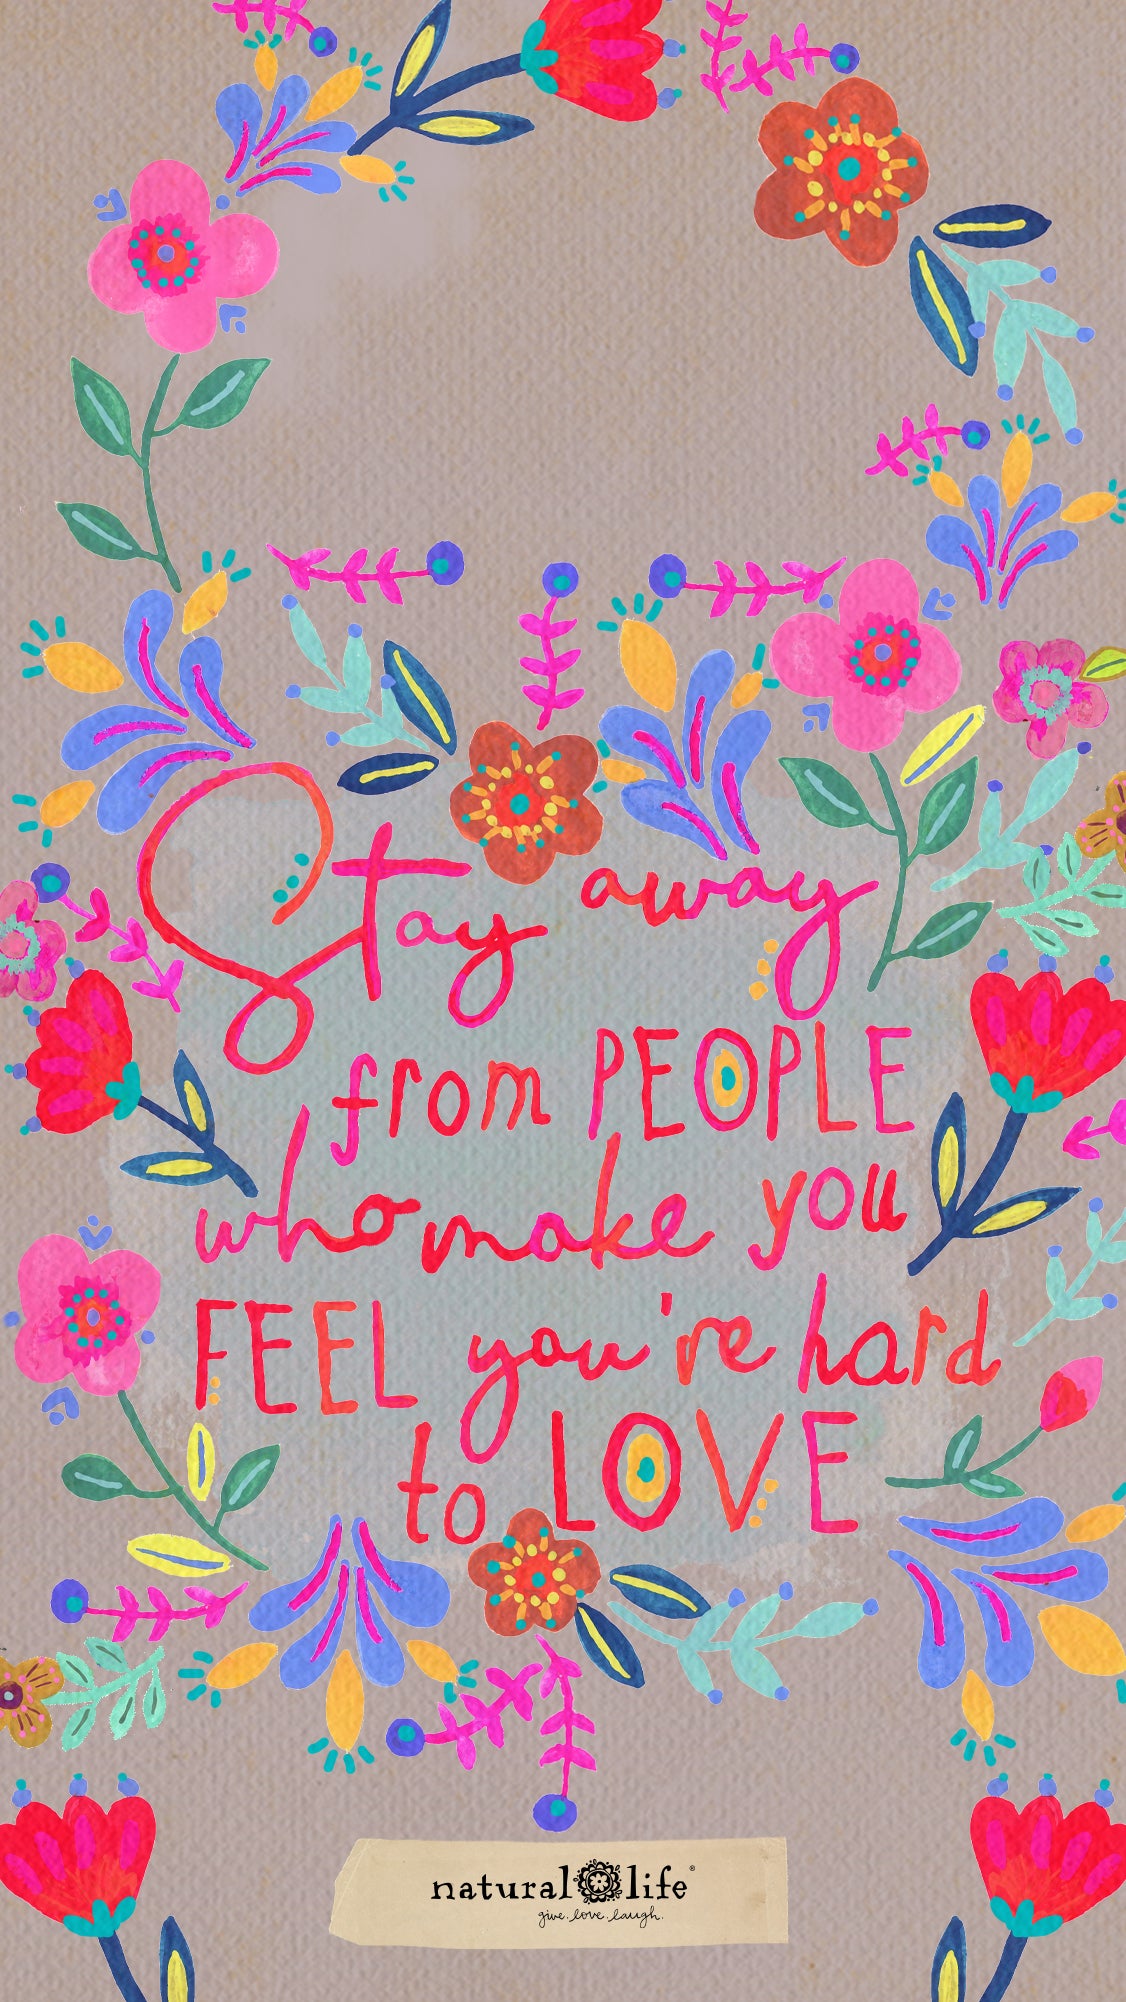 Stay away
from PEOPLE
who make you
FEEL you're hard
to LOVE
natural life®
give.love.laugh.